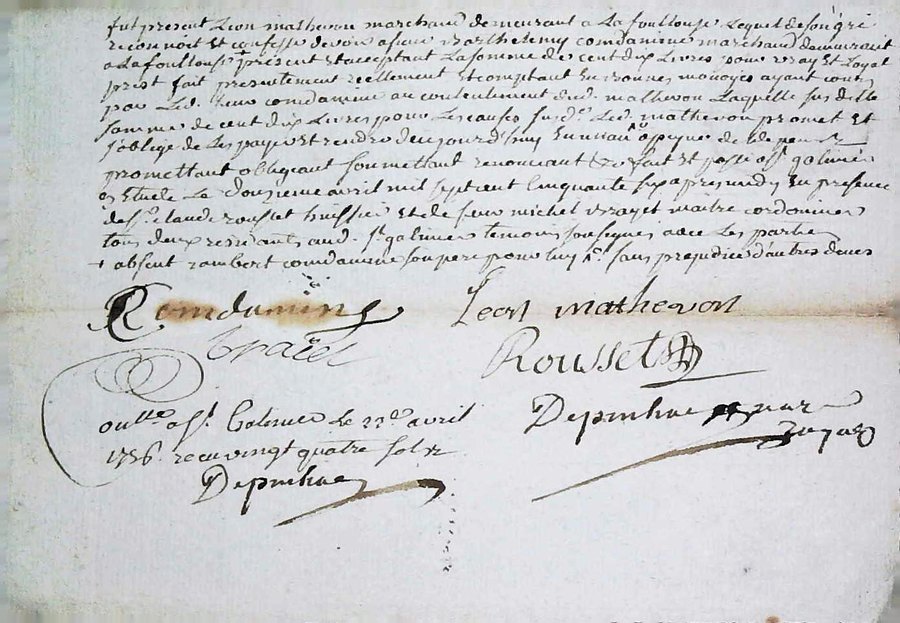 fut present Leon mathevon marchand demeurant a Lafoullouse Lequel de son gré
reconnoit Et confesse devoir a sieur Barthelemy condamine marchand demeurant
a Lafoullouse present Et acceptant La somme de cent dix Livres pour vray Et Loyal
prest fait presentement reellement Et comptant En bonnes monoyes ayant cours
par Led. sieur condamine au contentement dud. mathevon Laquelle susditte
somme de cent dix Livres pour Les causes susd.es Led. mathevon promet Et
s'oblige de Les payer Et rendre daujourd'huy En un an a peyne de
promettant obligeant soumettant renonceant &c fait Et passé a s.t galmier
Estude Le Douzieme avril mil sept cent Cinquante six apres midy En presence
de s.r claude rousset huissier Et de sieur michel vrayet maitre cordonnier
tous deux residants aud. s.t galmier temoins sousignes avec Les parties
+ absent rambert condamine son pere pour luy sans prejudice d'autres deues
Condamine Leon mathevon
Rousset
Depinhac
Depinhac
oulle a s.t Galmier Le 23.e avril
1756. recu vingt quatre sols